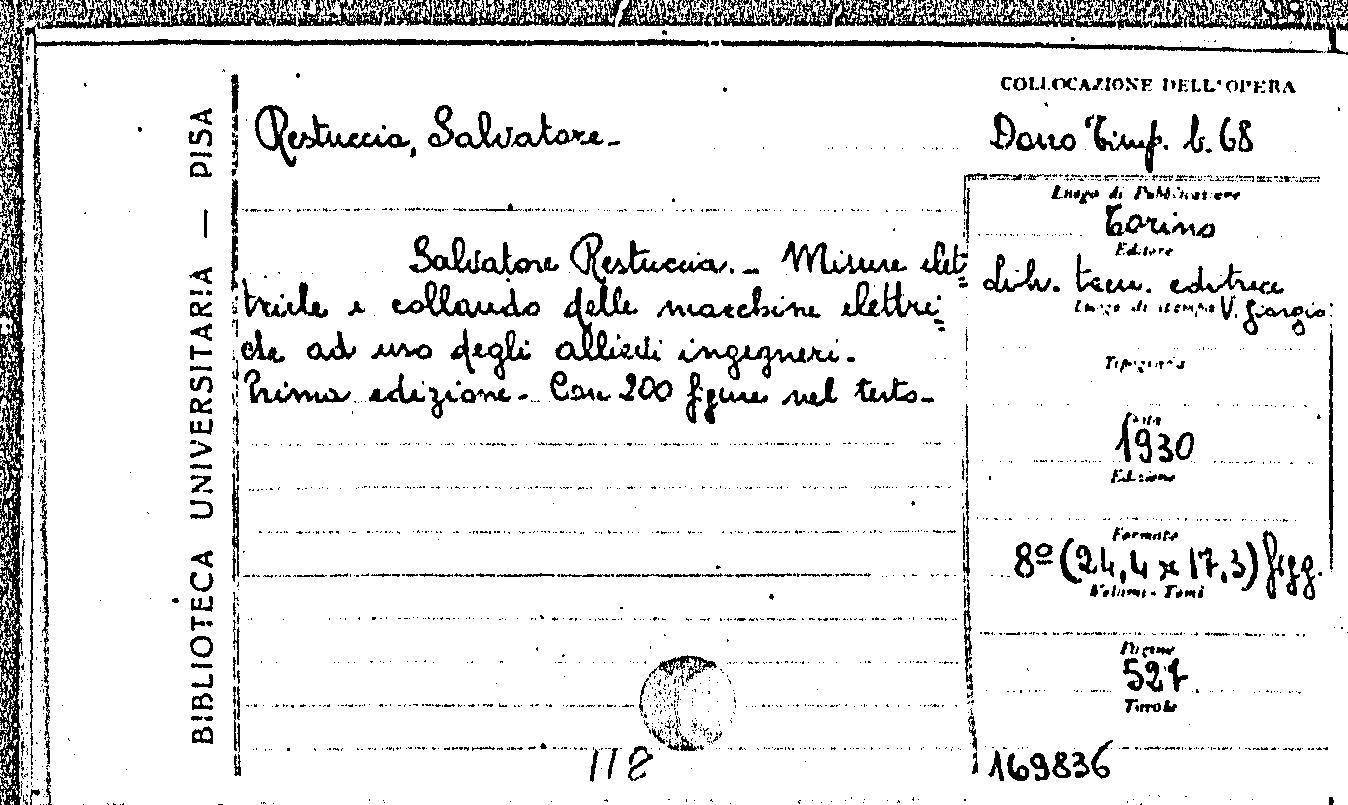 BIBLIOTECA UNIVERSITARIA — PISA
COLLOCAZIONE DELL'OPERA
Restuccia, Salvatore.-
Dono Timp. b. 68
Luogo di Pubblicazione
Torino
Editore
Salvatore Restuccia. - Misure elet=
lib. tecn. editrice
triche e collaudo delle macchine elettri=
Luogo di stampa V. Giorgio
che ad uso degli allievi ingegneri.
Tipografia
Prima edizione. Con 200 figure nel testo.-
Data
1930
Edizione
Formato
8º (24,4 x 17,3) figg.
Volumi - Tomi
Pagine
527
Tavole
118
169836